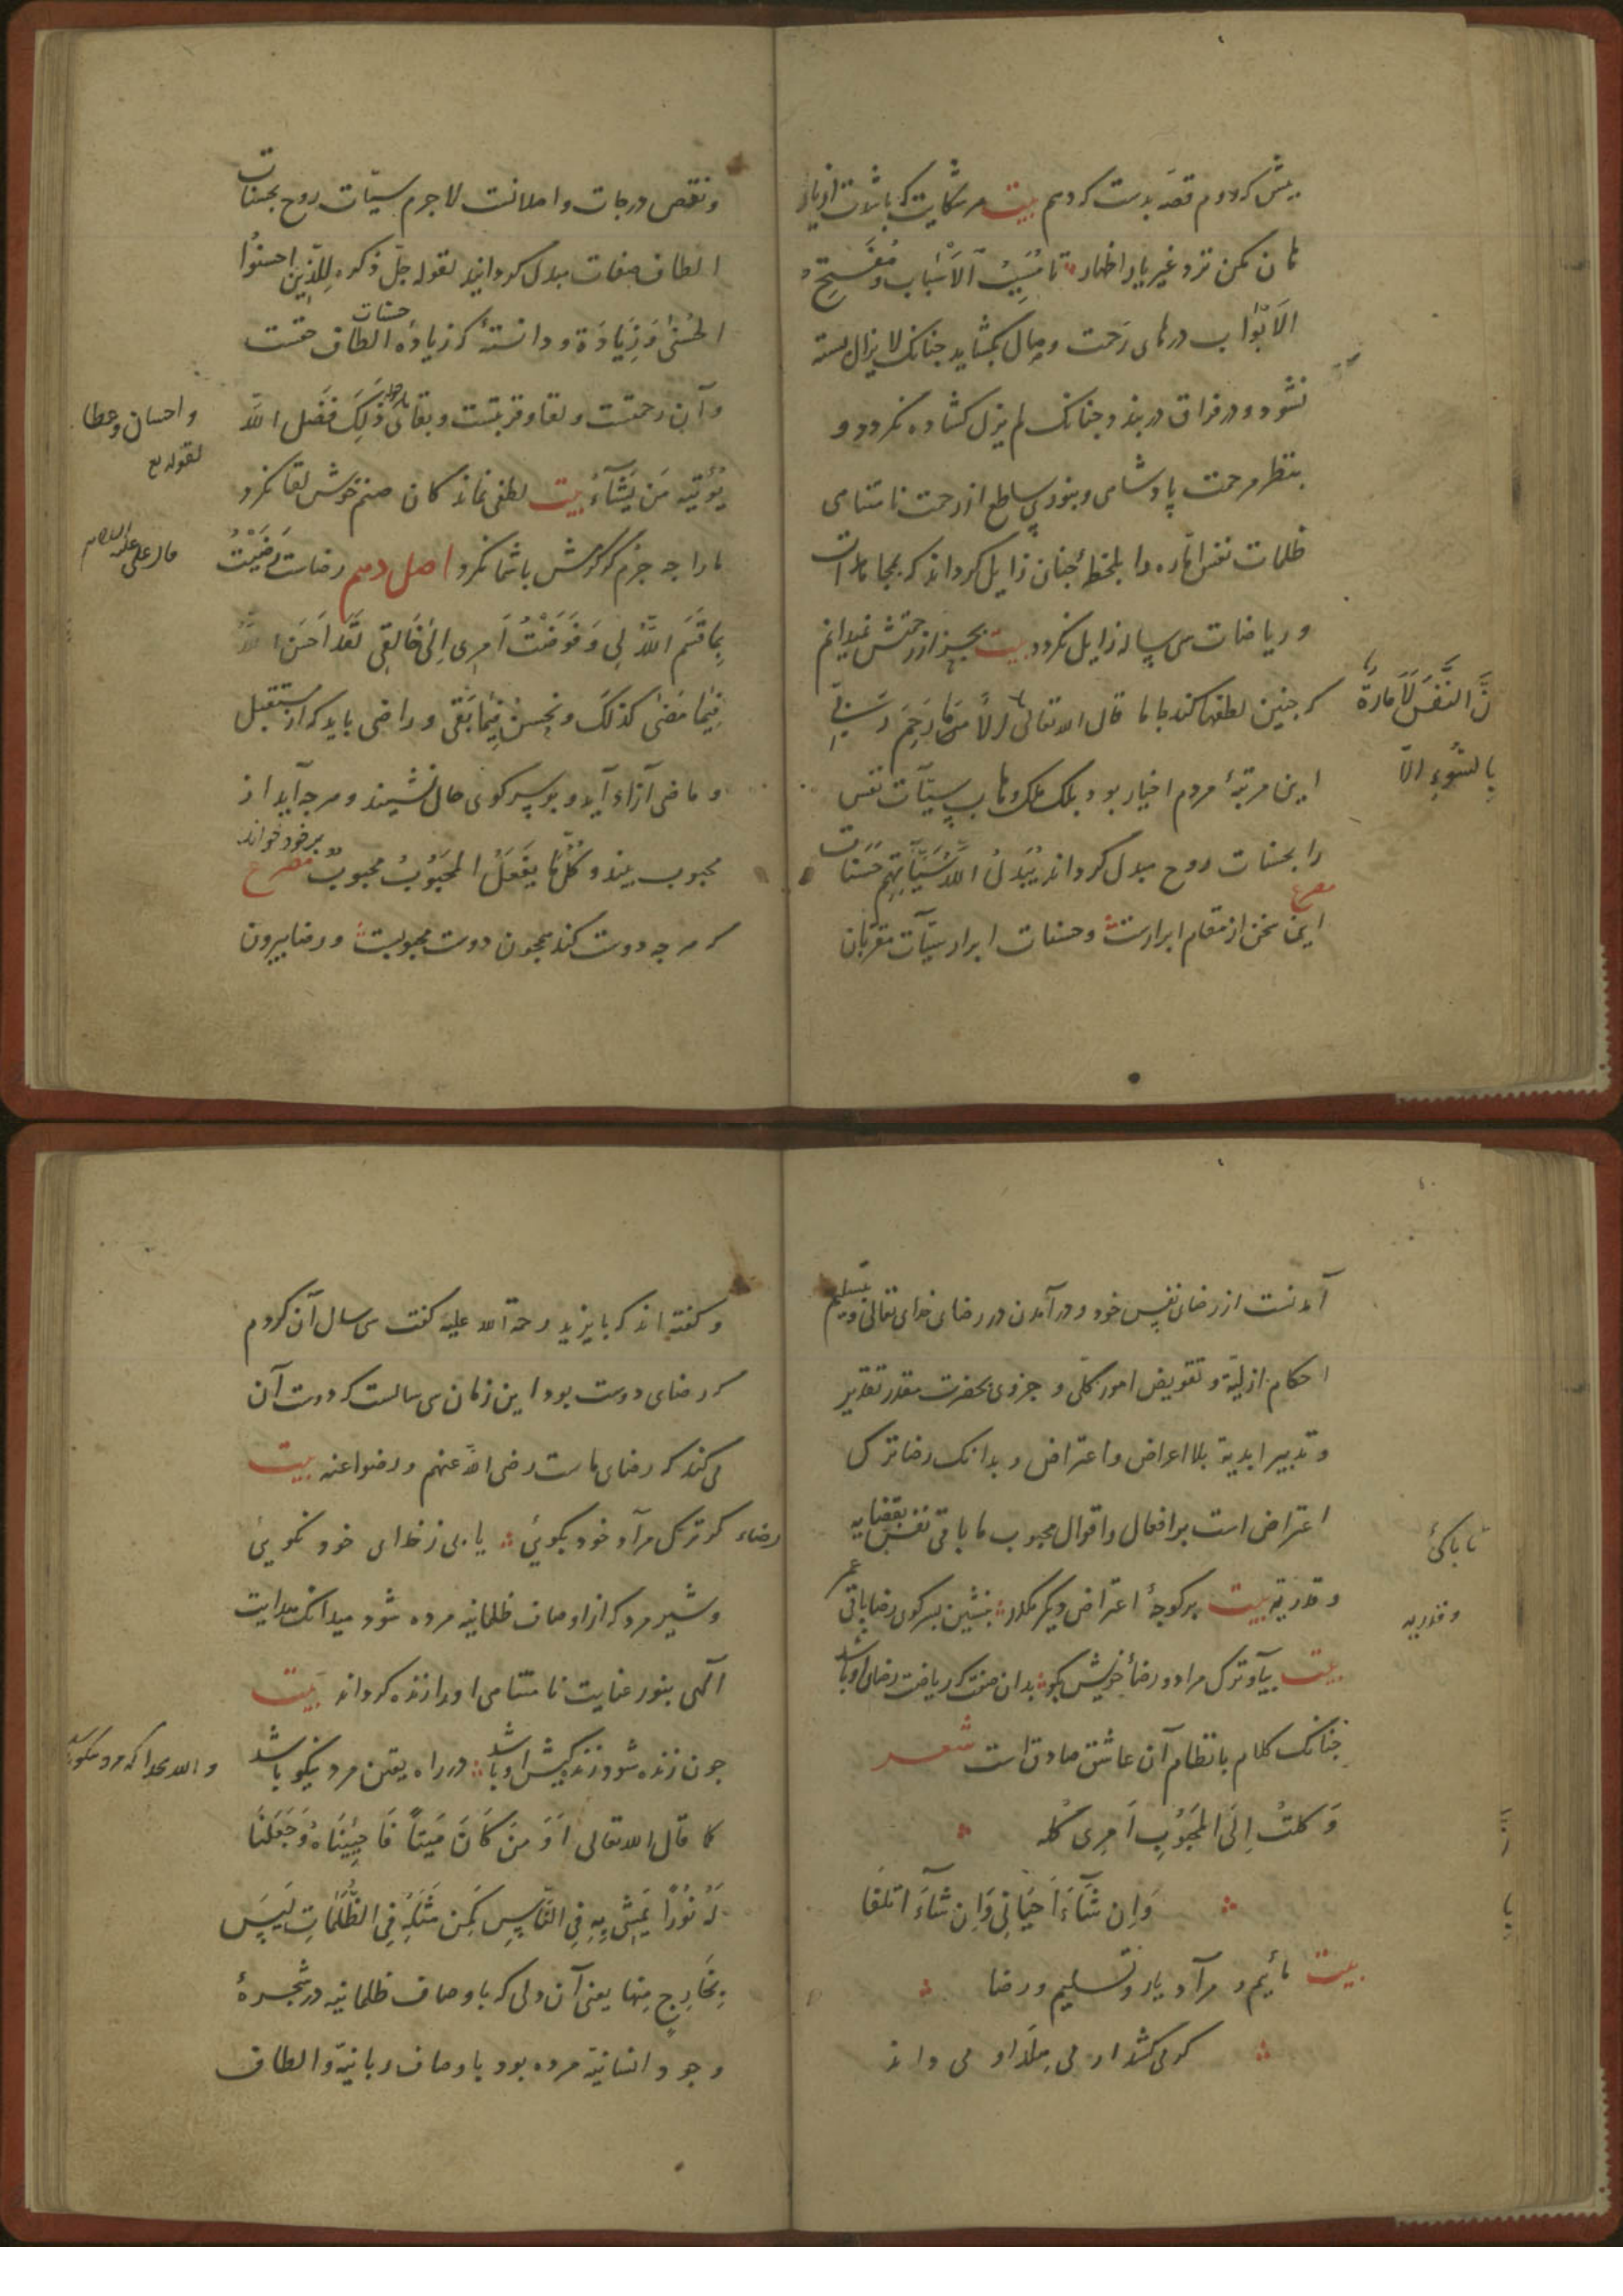 پیش کردم قصه بدست کردم بیت هر شکایت که باشدت از یار
هان مکن نزد غیر یار اظهار تا مُسَبِّبُ الْاَسْبَاب و مُفَتِّحُ
الْاَبْوَاب درهای رحمت وصال بگشاید چنانک لا یزال بسته
نشود و در فراق در بندد چنانک لم یزل گشاده نکردد و
بنظر مرحمت پادشاهی و بنور ساطع از رحمت نامتناهی
ظلمات نفس اماره را بلحظهٔ چنان زایل کرداند که بمجاهدات
و ریاضات سی ساله زایل نکردد بیت بجز از رحمتش نمیدانم
که چنین لطفها کند با ما قال الله تعالی اِلَّا مَا رَحِمَ رَبِّی
نَّ النَّفْسَ لَاَمَّارَةٌ
بِالسُّوءِ اِلَّا
این مرتبهٔ مردم اخیار بود بلک ملک وهاب سیّآت نفس
را بحسنات روح مبدل کرداند یُبَدِّلُ اللّٰهُ سَیِّآتِهِم حَسَنَات
مصرع
این سخن از مقام ابرارست و حسنات ابرار سیّآت مقربان
و نقص درجات و املانست لاجرم سیّآت روح بحسنات
الطاف صفات مبدل کرداند لقوله جلّ ذکره لِلَّذِینَ اَحْسَنُوا
الْحُسْنٰی وَ زِیَادَة و دانستهٔ که زیاده حسنات الطاف حقست
و آن رحمتست و لقا و قربتست و بقا ذٰلِکَ فَضْلُ اللّٰه
و احسان و عطا
لقوله تع
یُؤْتِیهِ مَن یَشَآءُ بیت لطفی نماند کان صنم خوش لقا نکرد
ما را چه جرم گر کرمش با شما نکرد اصل دهم رضاست رَضِیتُ
قال علی علیه السلام
بِمَا قَسَمَ اللّٰهُ لِی وَ فَوَّضْتُ اَمْرِی اِلٰی خَالِقِی لَقَد اَحْسَنَ اللّٰهُ
فِیمَا مَضٰی کَذٰلِکَ یُحْسِنُ فِیمَا بَقٰی و راضی باید که از مستقبل
و ماضی آزاد آید و بر سر کوی حال نشیند و هرچه آید از
محبوب بیند و کُلُّ مَا یَفْعَلُ الْمَحْبُوبُ مَحْبُوبٌ بر خود خواند مصرع
که هرچه دوست کند همچون دوست محبوبست و رضا بیرون
آمدنست از رضای نفس خود و در آمدن در رضای خدای تعالی و تسلیم
احکام ازلیّة و تفویض امور کلّی و جزوی بحضرت مقدر تقدیر
و تدبیر ابدیة بلا اعراض و اعتراض و بدانک رضا ترک
اعتراض است بر افعال و اقوال محبوب ما باقی نفس بقضایه
و قدریه بیت بر کوچهٔ اعتراض دیکر مکذر بنشین بسر کوی رضا باقی عمر
بیت بیا و ترک مراد و رضا خویش بکو بدان صفت که ریاضت رضای او باشد
چنانک کلام بانظام آن عاشق صادق است شعر
وَکَلْتُ اِلَی الْمَحْبُوبِ اَمْرِی کُلَّهُ
وَاِن شَآءَ اَحْیَانِی وَاِن شَآءَ اَتْلَفَا
بیت مائیم و مرآد یار و تسلیم و رضا
کو می کشد او می هلد او می داند
و گفته اند که بایزید رحمة الله علیه گفت سی سال آن کردم
که رضای دوست بود این زمان سی سالست که دوست آن
می کند که رضای ماست رضی الله عنهم و رضوا عنه بیت
رضاء کو ترک مرآد خود بکویی یا بی ز خدای خود نکویی
و شیر مرد که از اوصاف ظلمانیه مرده شود میدانک هدایت
الهی بنور عنایت نامتناهی او را زنده کرداند بیت
چون زنده شود زنده کیش او باشد در راه یقین مرد نیکو باشد
کما قال الله تعالی اَوَ مَنْ کَانَ مَیْتًا فَاَحْیَیْنَاهُ وَجَعَلْنَا
لَهُ نُورًا یَمْشِی بِهِ فِی النَّاسِ کَمَن مَثَلُهُ فِی الظُّلُمَاتِ لَیْسَ
بِخَارِجٍ مِنْهَا یعنی آن دلی که باوصاف ظلمانیه در شجرهٔ
وجود انسانیة مرده بود باوصاف ربانیة و الطاف